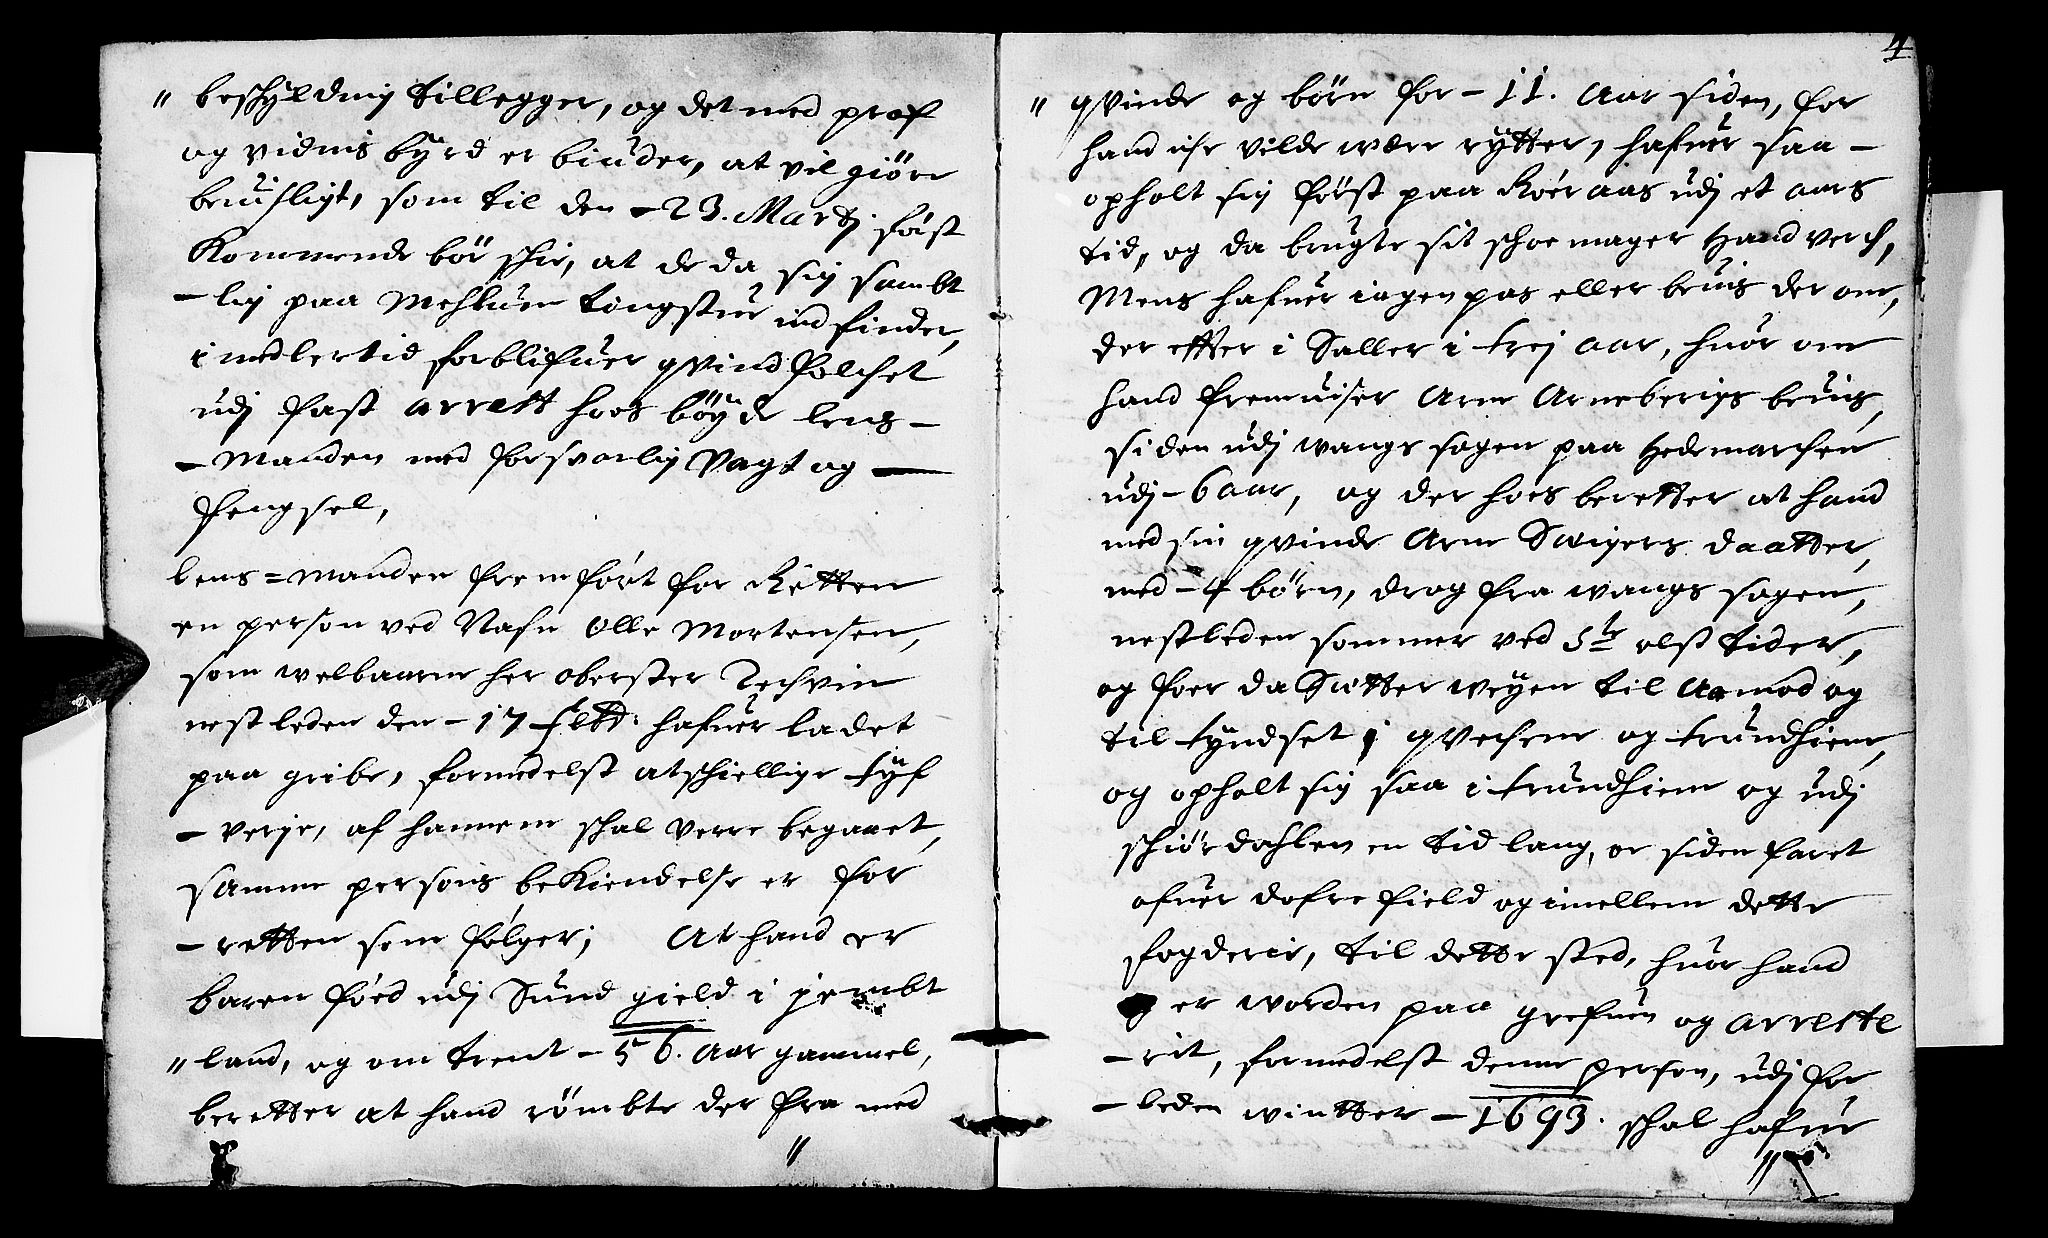 " beschyldning tillegger, og det med prof
og vidnis byrd er biuder, at vil giöre
beuisligt, som til den - 23. Martj först
Kommende bör schie, at de da sig sambt
- lig paa Mehluom tingstue ind finder,
i medlertid forblifuer qvind folchet
udj fast arrest hoes böyde lens -
- Manden med forsvarlig Vagt og -
fengsel,
lens = manden fremfört for Retten
en person ved Nafn Olle Mortensen,
som welbaarne her oberster Techvin
nestleden den - 17 hafuer ladet
paa gribe, formedelst atschiellige tyf
- verje, af hannem schal verre begaaet,
samme persons beKiendelse er for
- retten som fölger; At hand er
baren föed udj Sund gield i jembt
" land, og om trent - 56. aar gammel,
beretter at hand römbte der fra med
"
4
" qvinde og börn for - 11. aar siden, for
hand ich vilde være rytter, hafuer saa -
opholt sig först paa Roer aas udj et aars
tid, og da brugte sit schoe mager Hand verch,
Mens hafuer ingen pas eller beuis der om,
der effter i Saller i trej aar, huor om
hand fremuiser Arne Arnebergs beuis,
siden udj wangs sogen paa Hedemarchen
udj - 6 aar, og der hoes beretter at hand
med sin qvinde Arne daatter,
med - 4 börn, drog fra wangs sogen,
nestleden sommer ved St olss tider,
og foer da Setter weyen til Aamod og
til tyndset i qvechene og trundhiem,
og opholt sig saa i trundhiem og udj
schiördahlen en tid lang, oc siden faret
ofuer dofre field og imellem dette
fogderie, til dette sted, huor hand
er worden paa grefuen og arreste
- rit, formedelst denne person, udj for
- leden wintter - 1693. schal hafue
"